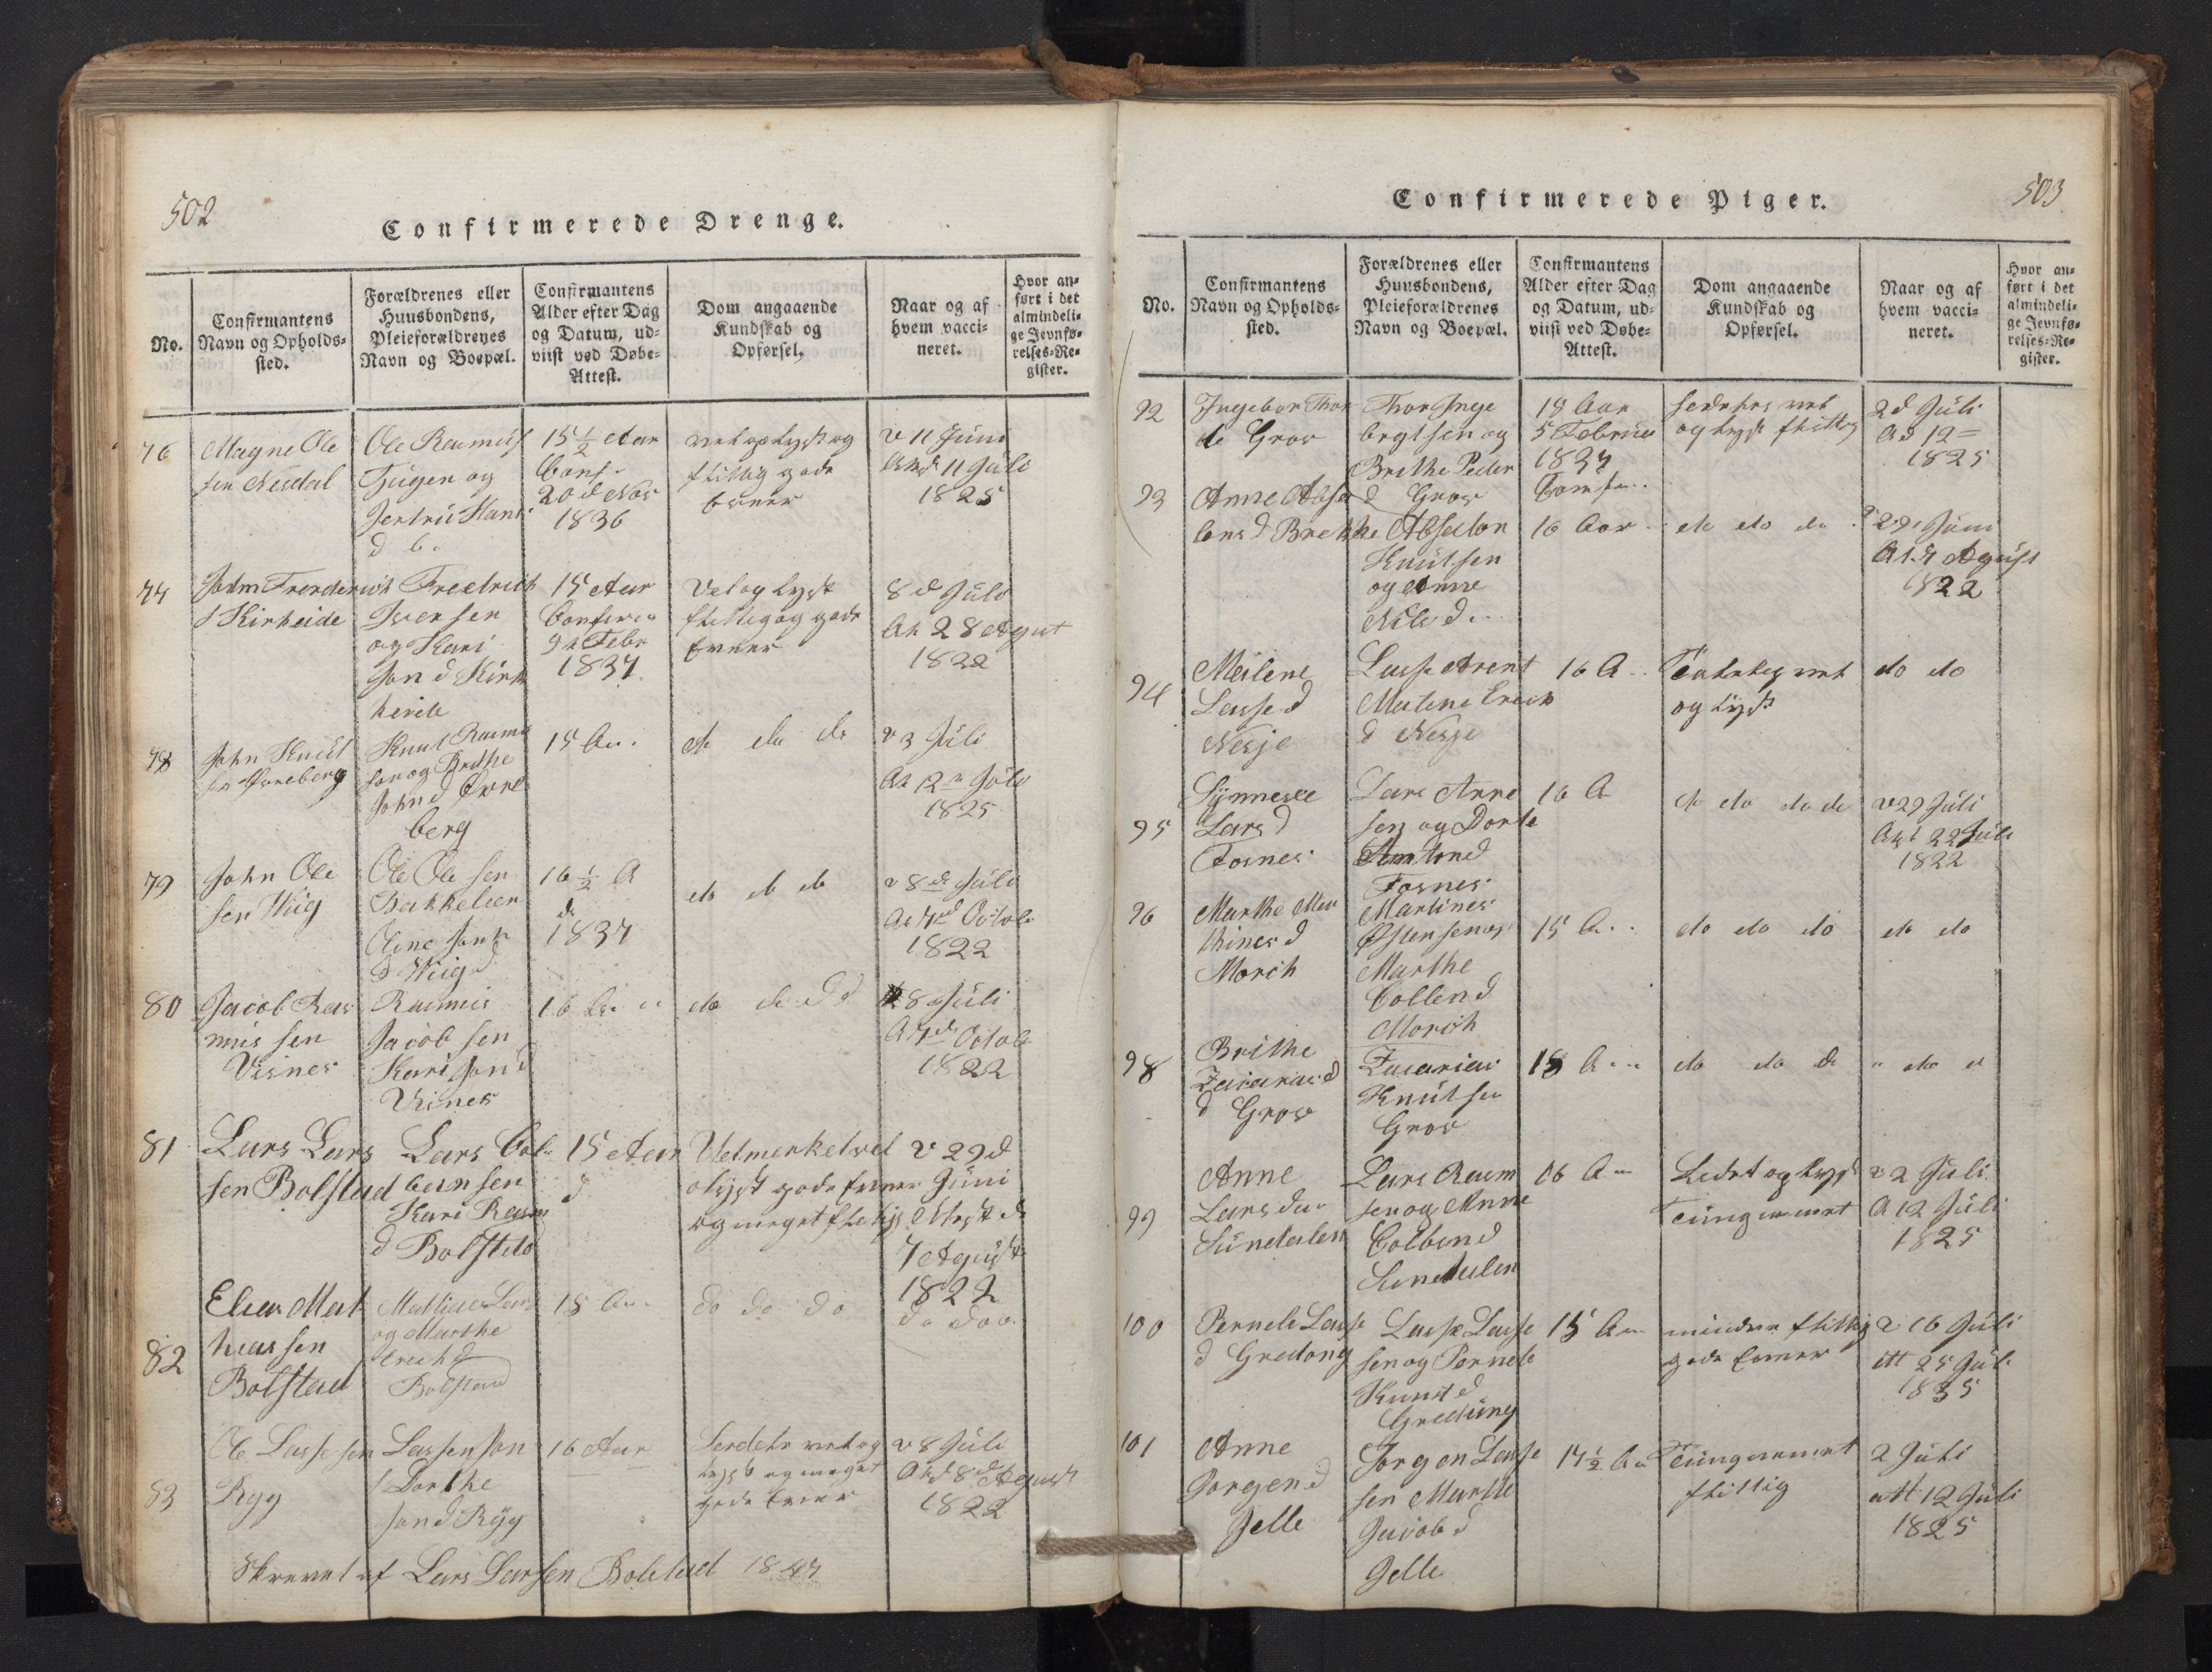 502
Confirmerede Drenge.
No.
Confirmantens
Navn og Opholds-
sted.
Forældrenes eller
Huusbondens,
Pleieforældrenes
Navn og Boepæl.
Confirmantens
Alder efter Dag
og Datum, ud-
viist ved Døbe-
Attest.
Dom angaaende
Kundskab og
Opførsel.
Naar og af
hvem vacci-
neret.
Hvor an-
ført i det
almindeli-
ge Jevnfø-
relses-Re-
gister.
76
Magne Ole
sen Nesdal
Ole Rasmus
og
Hans
d
15 1/2 Aar
Conf.
20 d Nov
1836
vel og lyst og
flittig gode
Evner
v 11 Juni
At d 11 Juli
1825
77
d Kirkeide
Fredrich
Iversen
og Kari
Jon d Kirk
heide
15 Aar
Confir
9 Febr
1837
Vel og lyst
flittig og gode
Evner
8 d Juli
At 28 Agust
1822
78
John Knut
sen
Knut Rasmu
sen og Brithe
John d
berg
15 Aa.
do do do
v 3 Juli
At 12 Juli
1825
79
John Ole
sen Wiig
Ole Ole sen
d Wiig
16 1/2 A
1837
do do do
v 8 de Juli
At 4 d Octob
1822
80
Jacob Ras
mus sen
Visnes
Rasmus
Jacob sen
Kari Jon d
Visnes
16 Aa
do do d d
28 Juli
At 4 d Octob
1822
81
Lars Lars
sen Bolstad
Lars Col
bein sen
Kari Rasm
d Bolstad
15 Aar
d
Vel merket vel
olyst gode Evner
og meget flitig
v 29 d
Juni
Attest d
7 Agust
1822
82
Elias Mat
hias sen
Bolstad
Mathias Lars
og Marthe
Erich d
Bolstad
15 Aa.
do do do
do do
83
Ole Lasse sen
Ryg
Lasse Jon
Dorthe
Jon d Ryg
16 Aar
Serdeles vel og
lyst og meget
gode Evner
v 8 Juli
At d 8 d Agust
1822
Skrevet af Lars Larsen Bolstad 1847
503
Confirmerede Piger.
No.
Confirmantens
Navn og Opholds-
sted.
Forældrenes eller
Huusbondens,
Pleieforældrenes
Navn og Boepæl.
Confirmantens
Alder efter Dag
og Datum, ud-
viist ved Døbe-
Attest.
Dom angaaende
Kundskab og
Opførsel.
Naar og af
hvem vacci-
neret.
Hvor an-
ført i det
almindeli-
ge Jevnfø-
relses-Re-
gister.
92
Ingebor Thor
d Grov
Thor Inge
brgtsen og
Brithe Peder
d Grov
18 Aar
5 Februar
1837
Serdeles vel
og lyst flittig
2 d Juli
At 12
1825
93
Anne Absa
lons d Brekke
Absalon
Knutsen
og Anne
Nils d
16 Aar
do do do
29 Juni
At 4 Agust
1822
94
Meilene
Lasse d
Nesje
Lasse Arent
Malene Erich
d Nesje
16 A
vel
og lyst
do do
95
Synneve
Lars d
Fosnes
Lars Arne
sen og Dorte
Fosnes
16 A
do do do do
v 29 Juli
At 22 Juli
1822
96
Marthe Mar
thines d
Morch
Martines
Østensen og
Marthe
Colben d
Morch
15 A
do do do
do do
98
Brithe
Zacarias d
d Grov
Zacarias
Knutsen
Grov
15 A
do do do
do
99
Anne
Lars da
Sundalen
Lars Rasm
sen og Anne
Colben d
Sundalen
16 A
og lyst
v 2 Juli
A 12 Juli
1825
100
Pernele Lasse
d Gredong
Lasse Lasse
sen og Pernele
Knut d
Gredung
15 A
mindre flittig
gode Evner
v 16 Juli
Att 25 Juli
1835
101
Anne
Jorgen d
Jelle
Jorgen Lasse
sen Marthe
Jacob d
Jelle
17 1/2 Aa
flittig
2 Juli
att 12 Juli
1825